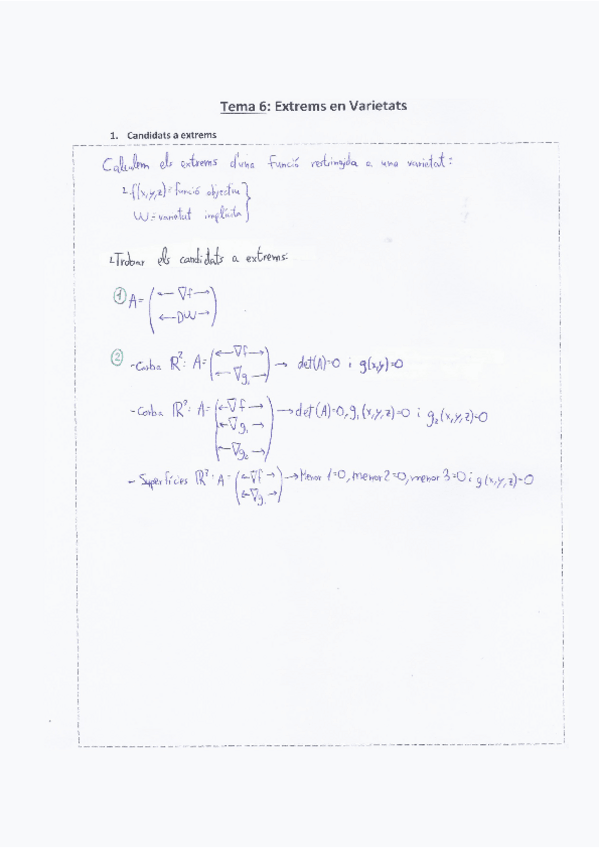 Tema 6: Extrems en Varietats
1. Candidats a extrems
Calculem els extrems d'una funció restringida a una varietat:
f(x,y,z)=funció objectiu
W=varietat implícita
Trobar els candidats a extrems:
① A= (← ∇f →
← DW →)
② - Corba ℝ²: A= (← ∇f →
← ∇g₁ →) → det(A)=0 i g(x,y)=0
- Corba ℝ³: A= (← ∇f →
← ∇g₁ →
← ∇g₂ →) → det(A)=0, g₁(x,y,z)=0 i g₂(x,y,z)=0
- Superfícies ℝ³: A= (← ∇f →
← ∇g₁ →) → Menor 1=0, menor 2=0, menor 3=0 i g(x,y,z)=0